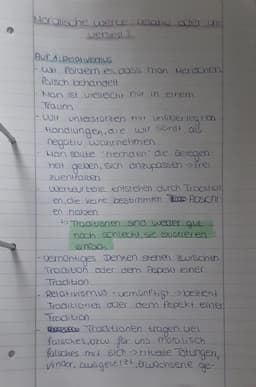 Moralische Werte: relativ oder uni
versell?
Auf. 1: Relativismus
- Wir fordern es, dass man Menschen
falsch behandelt
- Man ist vielleicht nur in einem
Traum
- Wir unterstützen mit
Handlungen, die wir sonst als
negativ wahrnehmen
- Man sollte "niemandem" die Gelegen
heit geben, sich anzupassen
- Werturteile entstehen durch Tradition
en, die keine bestimmten
en haben
↳ Traditionen sind weder gut
noch schlecht, sie existieren
einfach
- vernünftiges Denken stehen zwischen
Tradition oder dem Aspekt einer
Tradition
- Relativismus - vernünftig → besteht
Traditionen oder dem Aspekt einer
Tradition
- Traditionen tragen viel
falsches, bzw. für uns moralisch
falsches mit sich → rituelle Tötungen,
Kinder, ausgesetzt, Erwachsene ge-